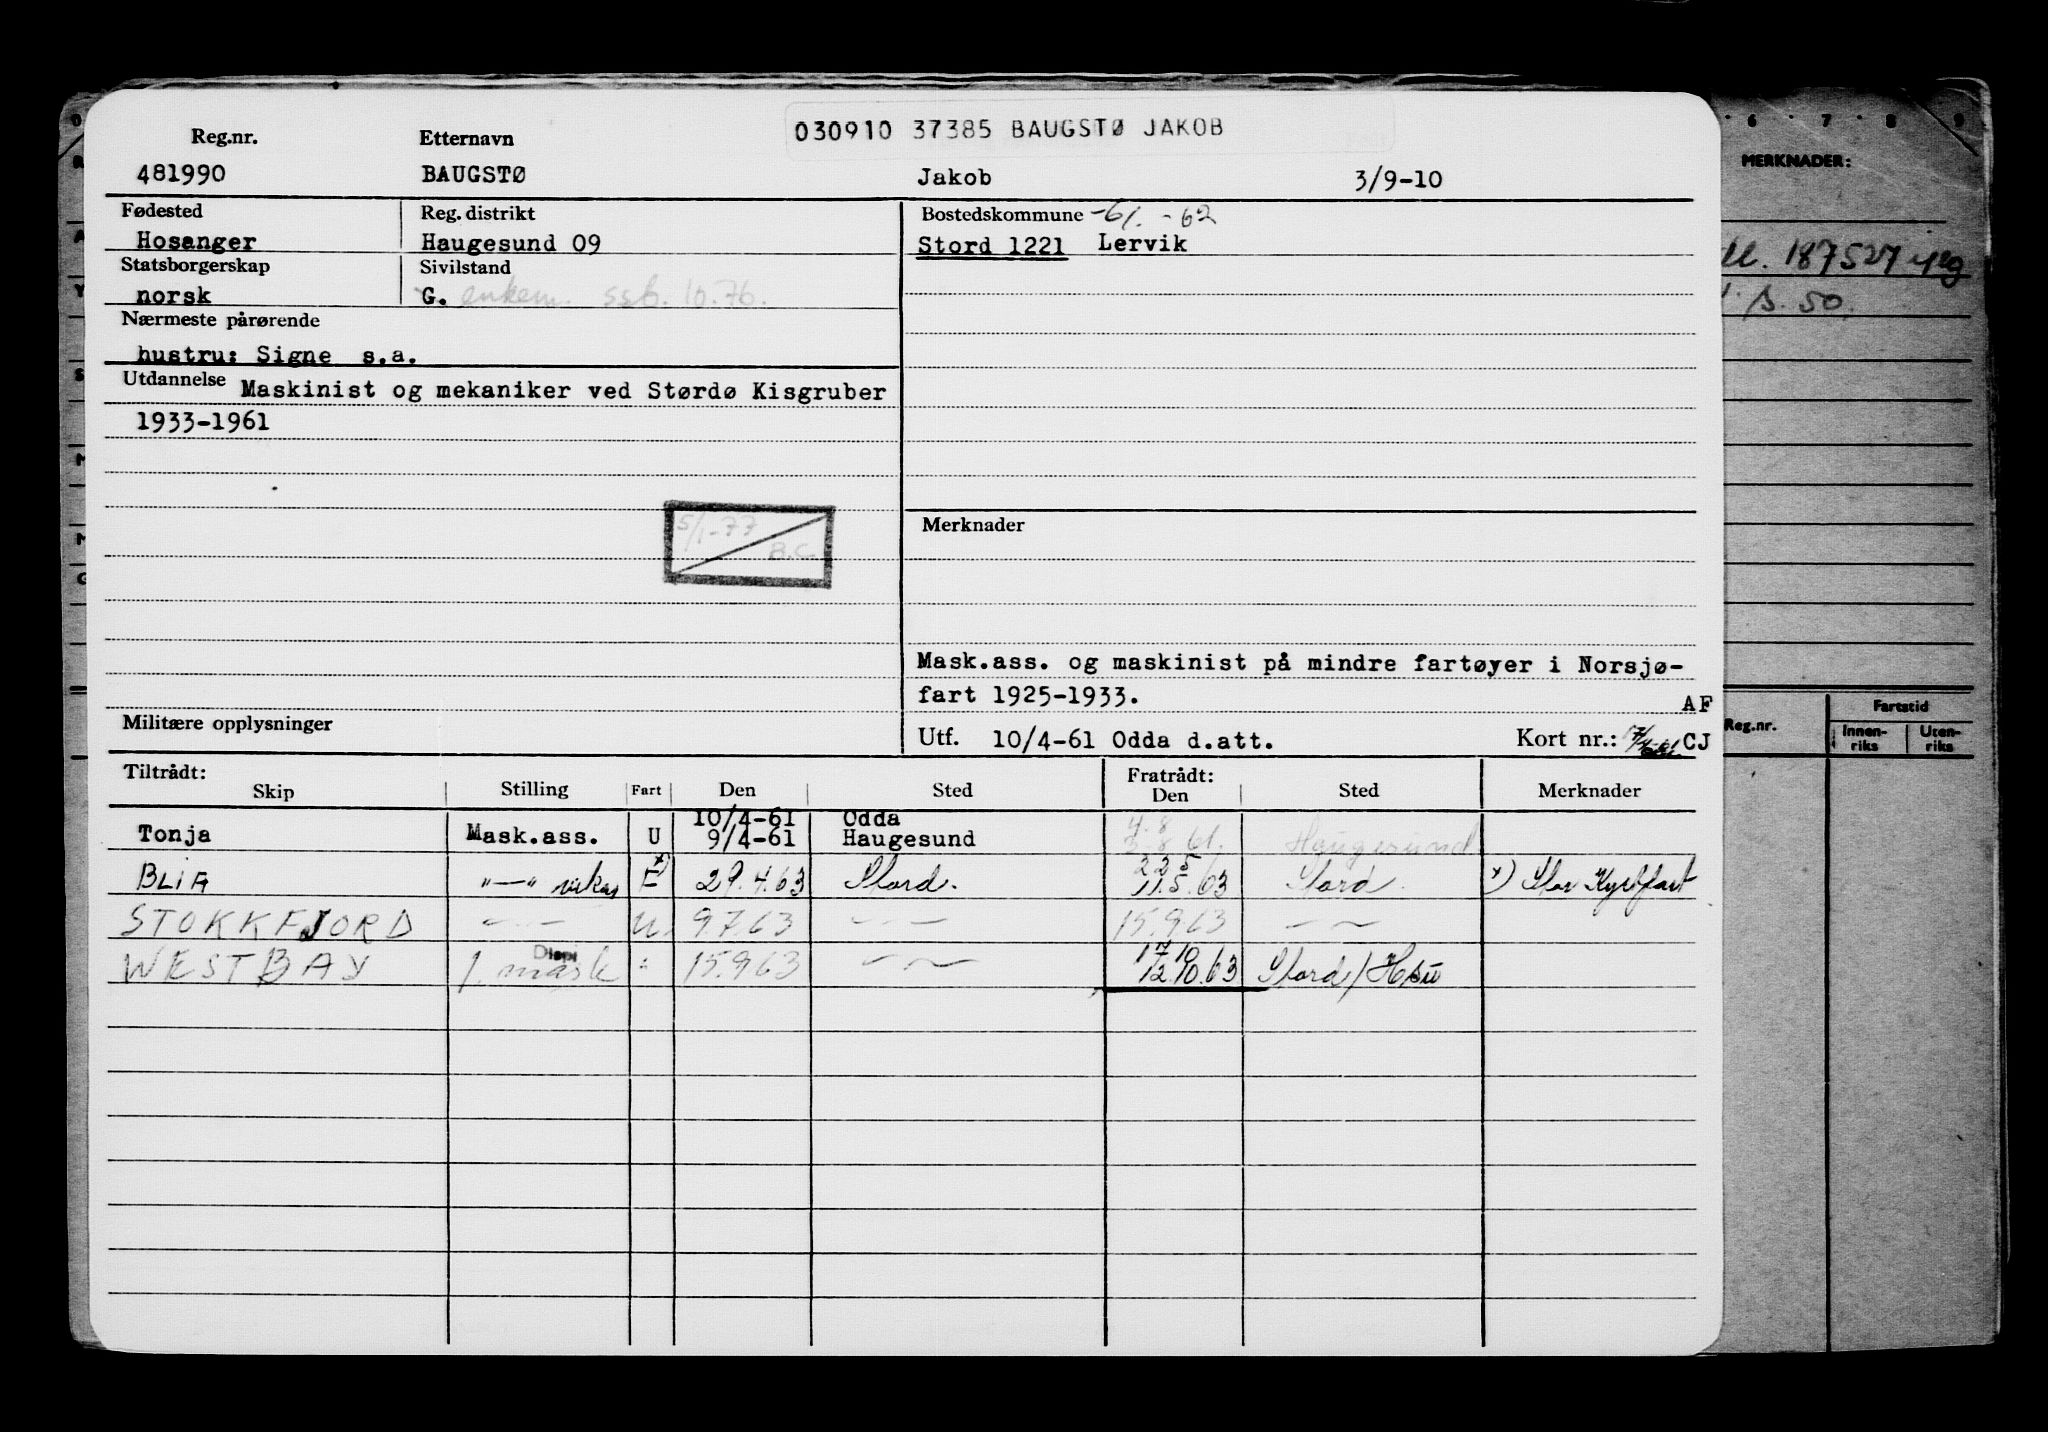 030910 37385 BAUGSTØ JAKOB
Reg.nr. Etternavn
481990 BAUGSTØ Jakob 3/9-10
Fødested Reg. distrikt Bostedskommune -61. -62
Hosanger Haugesund 09 Stord 1221 Lervik
Statsborgerskap Sivilstand
norsk G. enkem. ssb. 10.76.
Nærmeste pårørende
hustru: Signe s.a.
Utdannelse Maskinist og mekaniker ved Størdø Kisgruber
1933-1961
5/1-77 B.C.
Merknader
Mask.ass. og maskinist på mindre fartøyer i Norsjø-
fart 1925-1933.
AF
Militære opplysninger
Utf. 10/4-61 Odda d.att. Kort nr.: CJ
Tiltrådt: Fratrådt:
Skip Stilling Fart Den Sted Den Sted Merknader
10/4-61 Odda 4.8
Tonja Mask.ass. U 9/4-61 Haugesund 3.8 61. Haugesund
22 5
BLIA "—" vikar E x) 29.4.63 Stord. 11.5.63 Stord. x) Stor Kystfart
STOKKFJORD —"— U. 9.7.63 —"— 15.9.63 —"—
Disp. 17 10
WESTBAY 1. mask " 15.9.63 —"— 12.10.63 Stord/Hsu
6 7 8 9
MERKNADER:
187527
s. 50.
Reg.nr. Fartstid
Innen-
riks
Uten-
riks